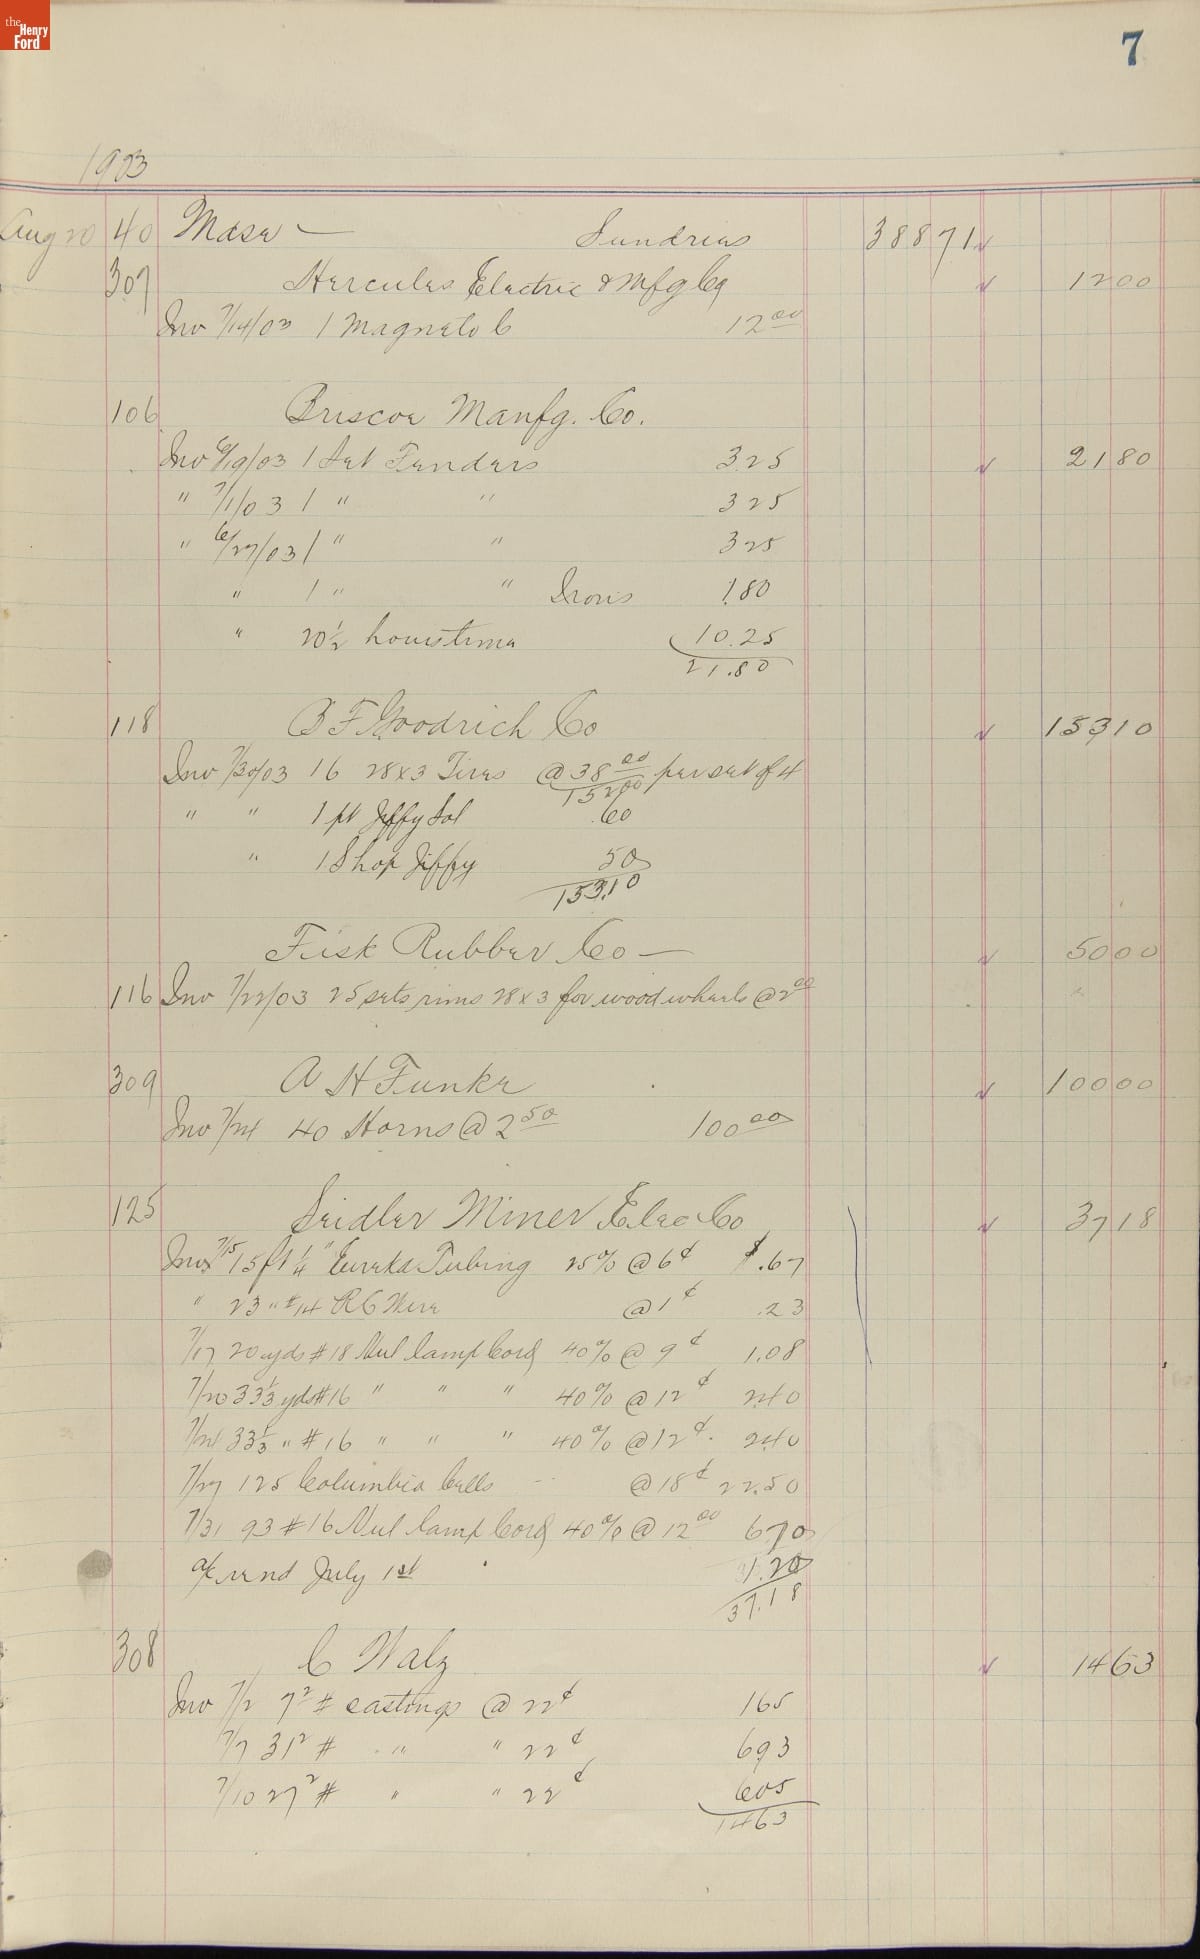 the Henry Ford
7
1903
Aug 20 40 Mdse — Sundries 388 71
307 Hercules Electric & Mfg Co 12 00
Inv 7/14/03 1 Magneto C 12 00
106 Briscoe Manfg. Co.
Inv 6/19/03 1 Set Fenders 3.25 21 80
" 7/1/03 1 " " 3 25
" 6/27/03 1 " " 3 25
" 1 " " Irons 1.80
" 20 1/2 hours time 10.25
21.80
118 B F Goodrich Co 153 10
Inv 7/30/03 16 28x3 Tires @ 38 00 per set of 4
152 00
" " 1 pt Jiffy Sol .60
" 1 Shop Jiffy 50
153.10
Fisk Rubber Co — 50 00
116 Inv 7/22/03 25 sets rims 28x3 for wood wheels @ 2 00
309 A H Funke 100 00
Inv 7/24 40 Horns @ 2 50 100 00
125 Seidler Miner Elec Co 37 18
Inv 7/15 15 ft 1/4" Eureka Tubing 25% @ 6¢ $.67
" 23 " #14 RC Wire @ 1¢ .23
7/17 20 yds #18 Lamp Cord 40% @ 9¢ 1.08
7/20 33 1/3 yds #16 " " " 40% @ 12¢ 2.40
7/24 33 1/3 " #16 " " " 40% @ 12¢. 2.40
7/27 125 Columbia Cells @ 18¢ 22.50
7/31 93 #16 Lamp Cord 40% @ 12 00 6 70
a/c rend July 1st 1.20
37.18
308 C Walz 14 63
Inv 7/2 7 2 # castings @ 22¢ 1 65
7/7 31 2 # " " 22¢ 6 93
7/10 27 2 # " " 22¢ 6 05
14 63